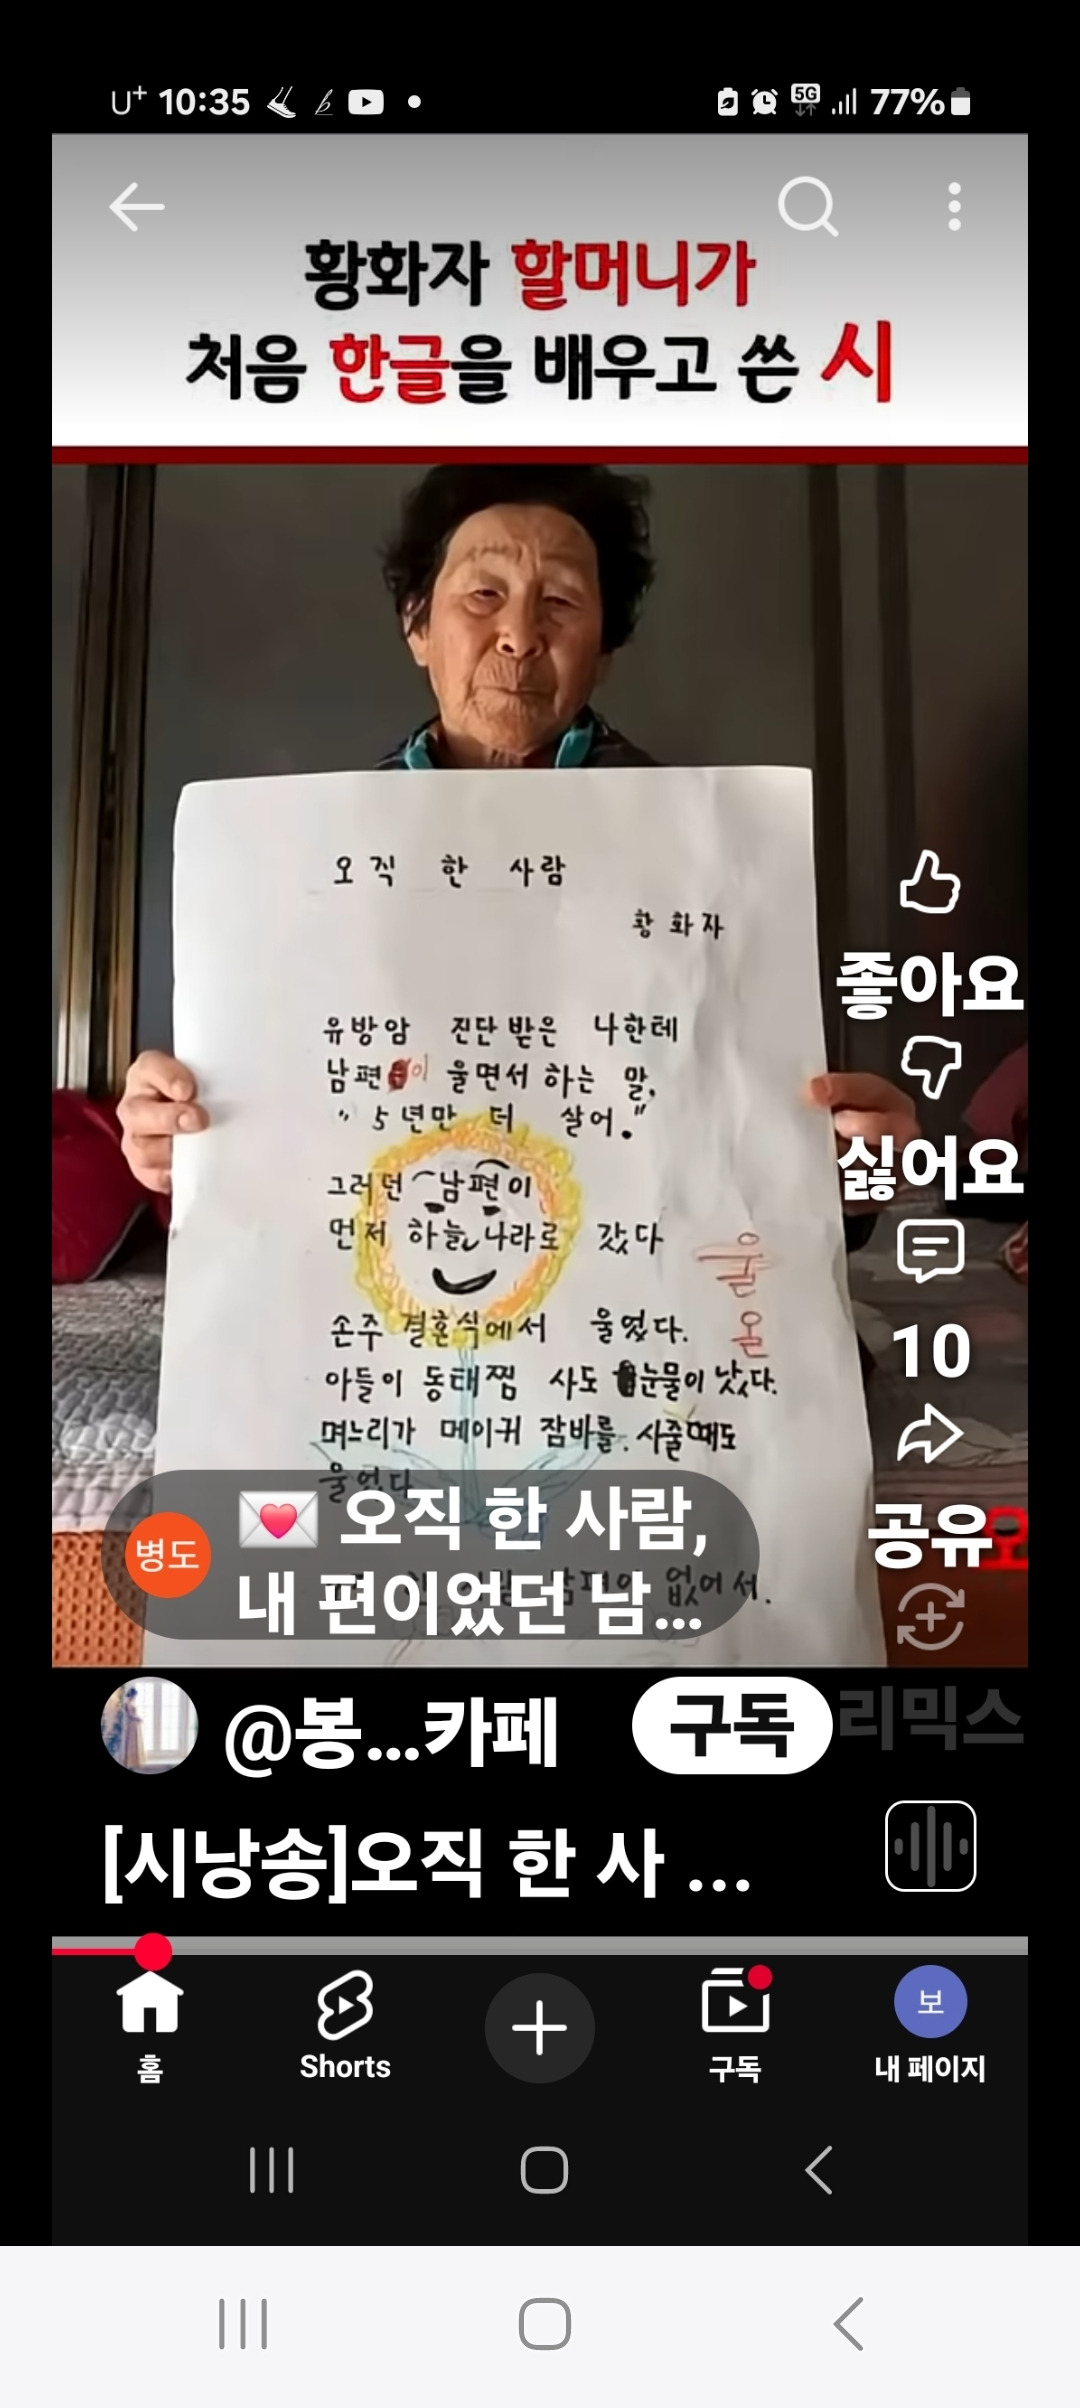 U+ 10:35 5G 77%
황화자 할머니가
처음 한글을 배우고 쓴 시
오직 한 사람
황화자
유방암 진단 받은 나한테
남편이 울면서 하는 말,
"5년만 더 살어."
그러던 남편이
먼저 하늘나라로 갔다
손주 결혼식에서 울었다.
아들이 동태찜 사도 눈물이 낫다.
며느리가 메이귀 잠바를 사줄때도
울었다
울
올
없어서.
좋아요
싫어요
10
공유
리믹스
병도
💌 오직 한 사람,
내 편이었던 남...
@봉...카페
구독
[시낭송]오직 한 사 ...
홈
Shorts
구독
보
내 페이지